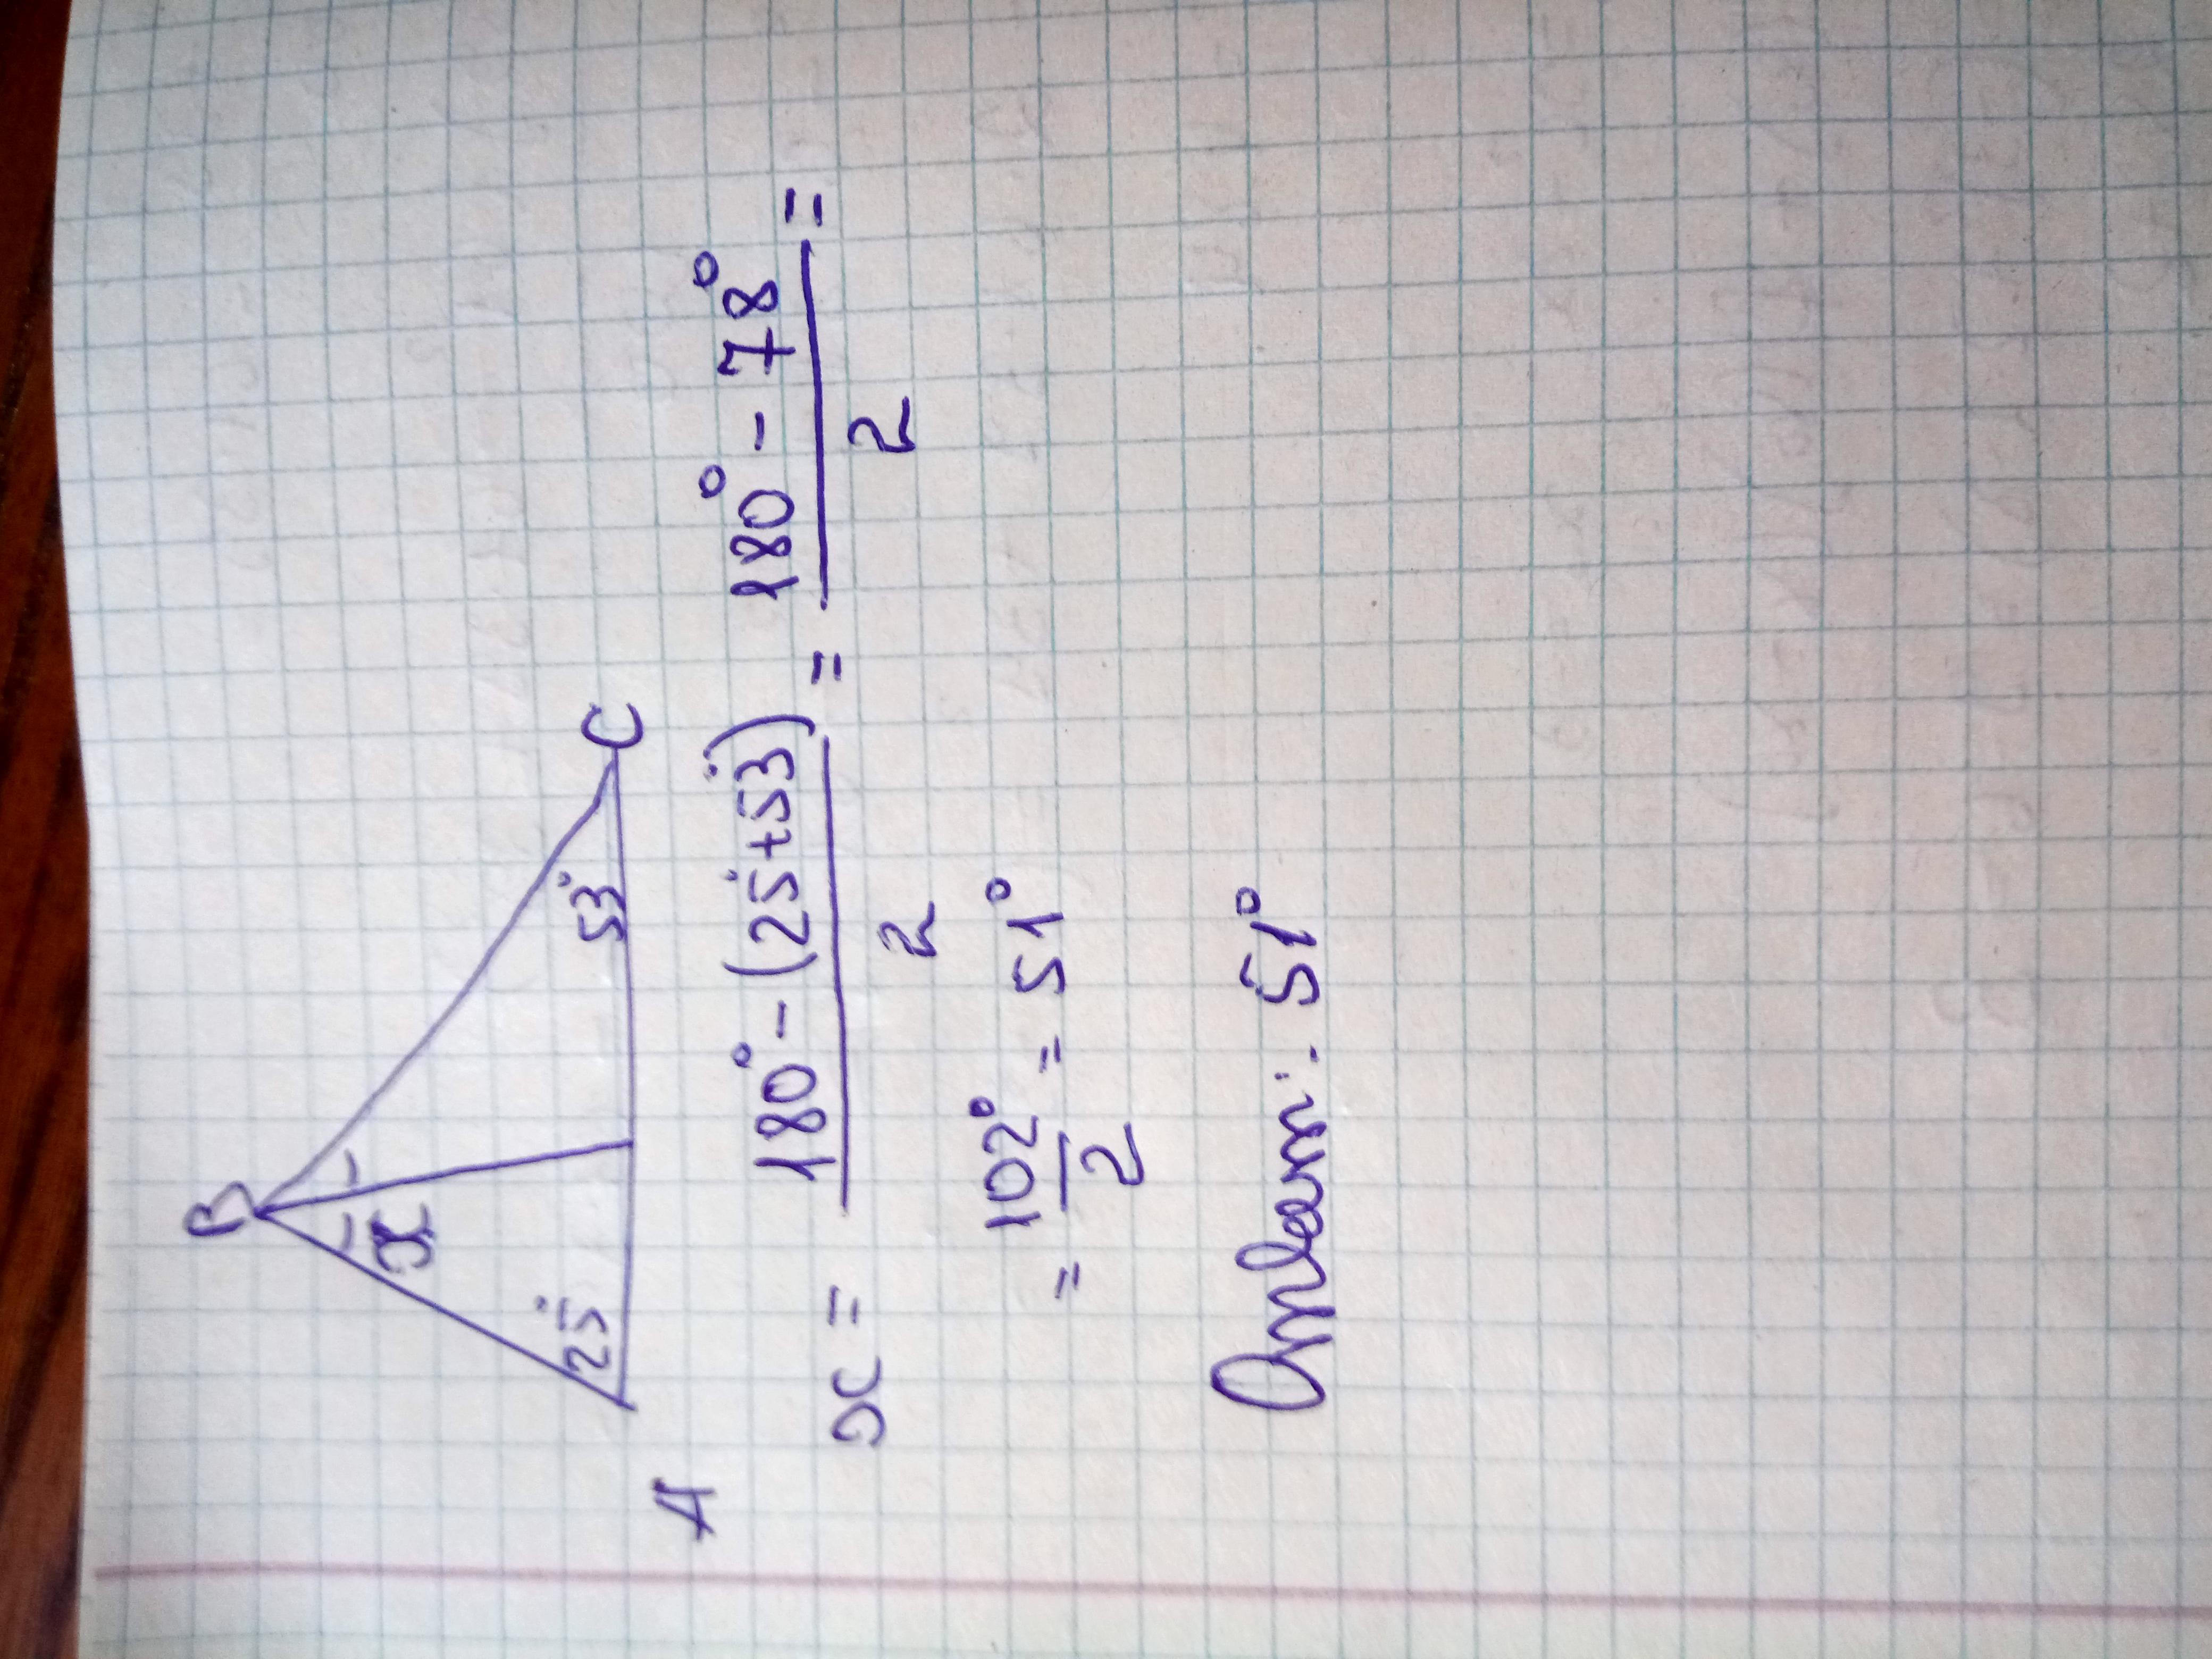 B
x
25°
53°
A
C
x = (180° - (25°+53°))/2 = (180° - 78°)/2 =
= 102°/2 = 51°
Ответ: 51°